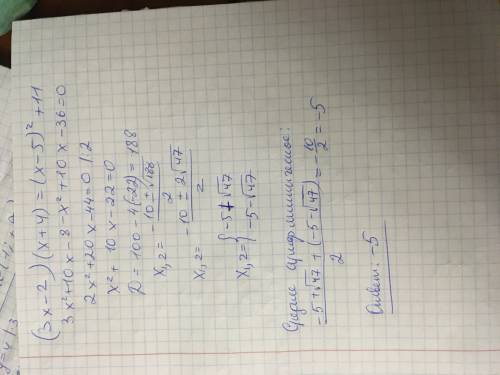 (3x-2)(x+4)=(x-5)²+11
3x²+10x-8-x²+10x-36=0
2x²+20x-44=0 |:2
x²+10x-22=0
D=100-4(-22)=188
x₁,₂= (-10±√188)/2
x₁,₂= (-10±2√47)/2
x₁,₂={-5+√47
{-5-√47
Среднее арифметическое:
(-5+√47+(-5-√47))/2=-10/2=-5
Ответ: -5